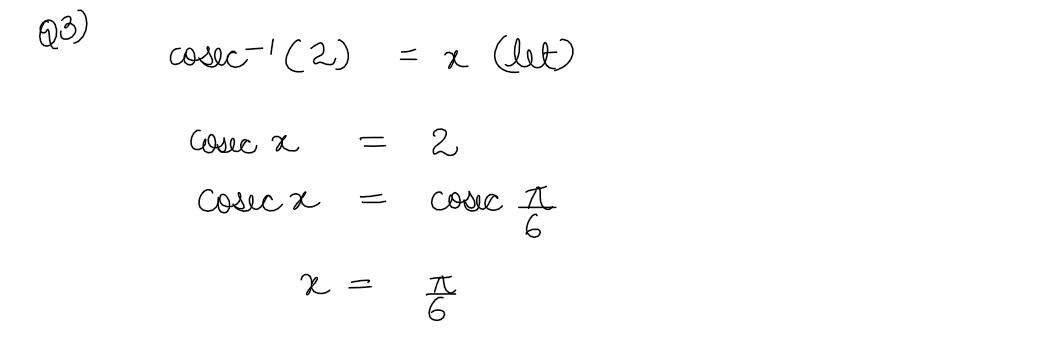 Q3)
cosec⁻¹(2) = x (let)
cosec x = 2
cosec x = cosec π/6
x = π/6